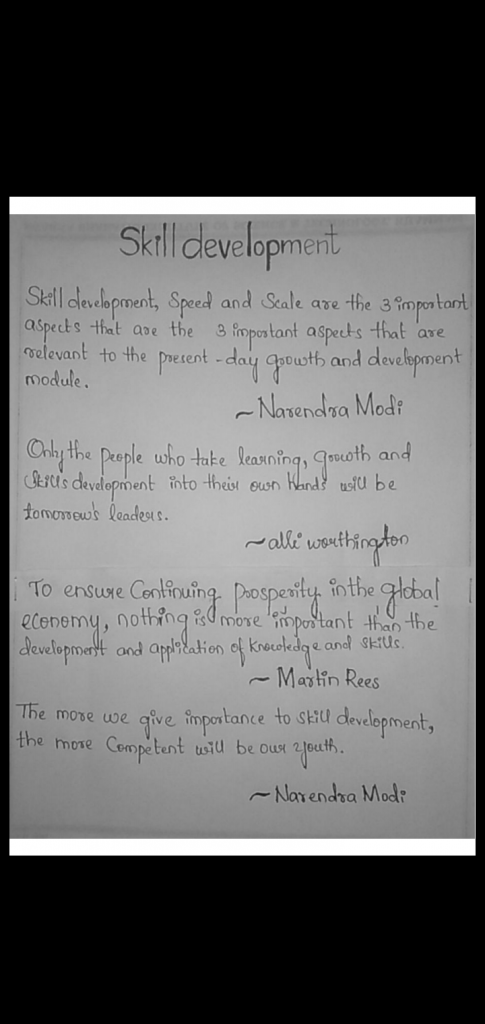 Skill development
Skill development, Speed and Scale are the 3 important
aspects that are the 3 important aspects that are
relevant to the present-day growth and development
module.
~ Narendra Modi
Only the people who take learning, growth and
Skills development into their own Hands will be
tomorrow's leaders.
~alli worthington
To ensure Continuing Prosperity in the global
economy, nothing is more important than the
development and application of knowledge and skills.
~ Martin Rees
The more we give importance to skill development,
the more Competent will be our youth.
~ Narendra Modi